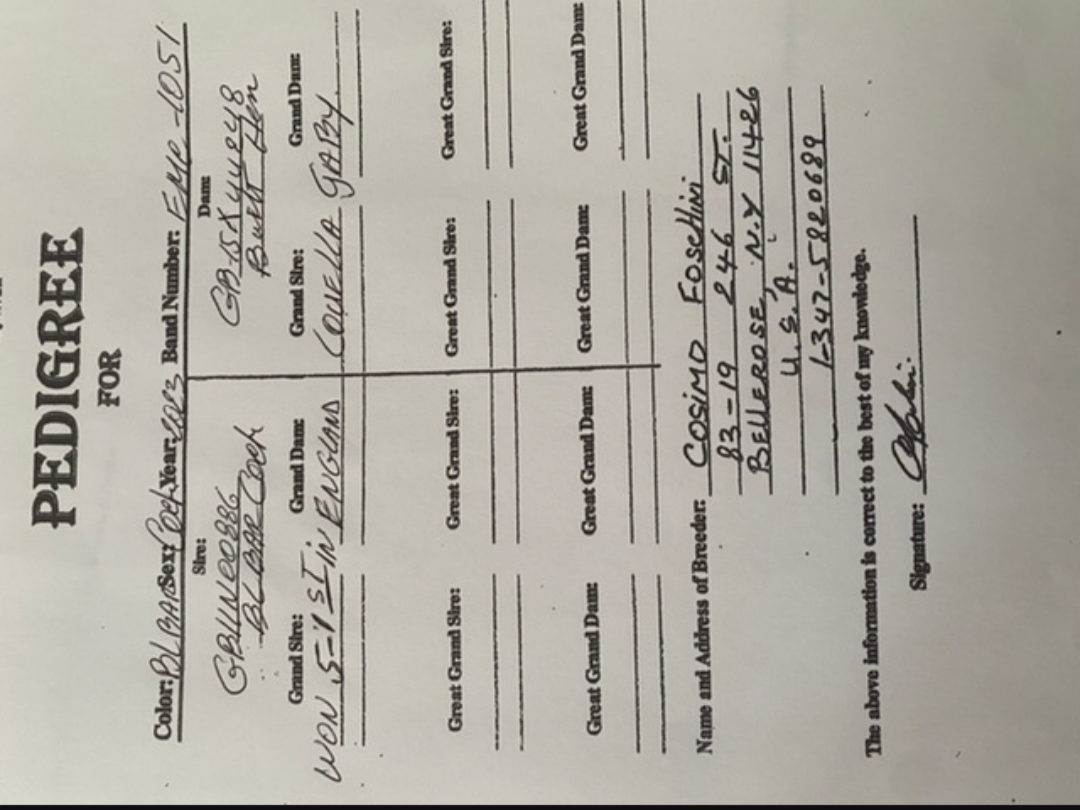 PEDIGREE
FOR
Color: BL BAR Sex: Cock Year: 2023 Band Number: EMP-1051
Sire: Dam:
GB11N00886 GB15X44248
BL BAR Cock Hen
Grand Sire: Grand Dam: Grand Sire: Grand Dam:
WON 5-1ST IN ENGLAND LOUELLA GABY
Great Grand Sire: Great Grand Sire: Great Grand Sire: Great Grand Sire:
Great Grand Dam: Great Grand Dam: Great Grand Dam: Great Grand Dam:
Name and Address of Breeder: COSIMO FOSCHINI
83-19 246 ST.
BELLEROSE, N.Y 11426
U.S.A.
1-347-5820689
The above information is correct to the best of my knowledge.
Signature: